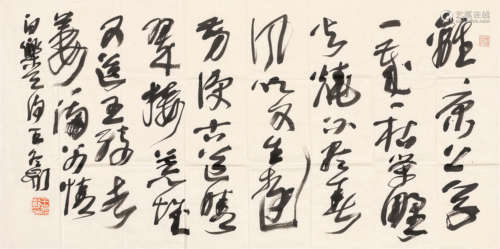 離〻原上草
一歲一枯榮野
火燒不盡春
風吹又生遠
芳侵古道晴
翠接荒城
又送王孫去
萋〻滿別情
白樂天詩